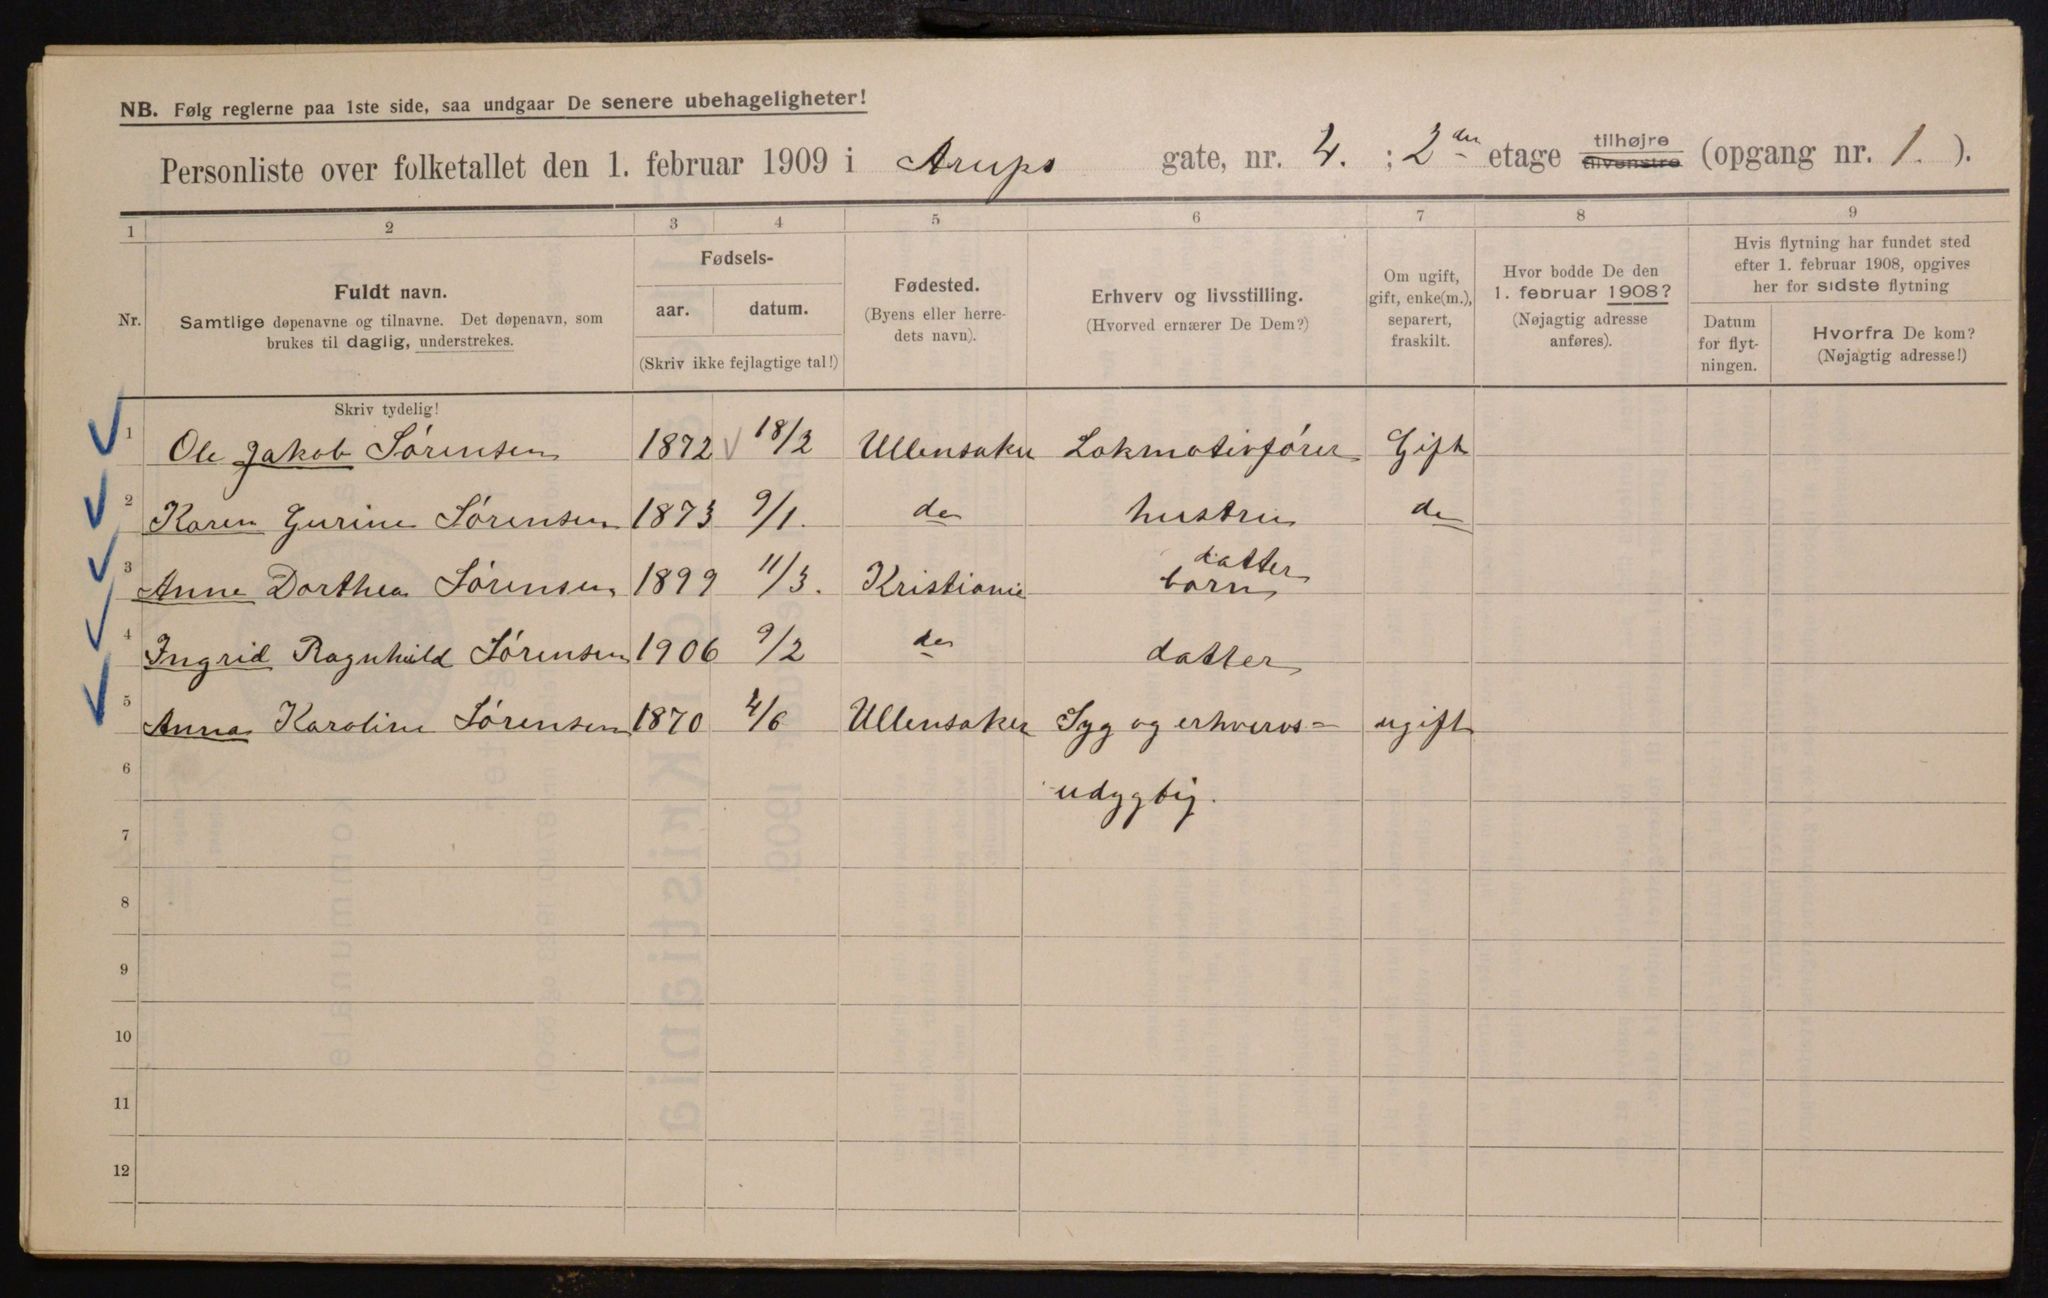 NB. Følg reglerne paa 1ste side, saa undgaar De senere ubehageligheter!
Personliste over folketallet den 1. februar 1909 i Arups gate, nr. 4. ; 2den etage tilhøjre tilvenstre (opgang nr. 1. ).
1 2 3 4 5 6 7 8 9
Nr.
Fuldt navn.
Samtlige døpenavne og tilnavne. Det døpenavn, som
brukes til daglig, understrekes.
Fødsels-
aar. datum.
(Skriv ikke fejlagtige tal!)
Fødested.
(Byens eller herre-
dets navn).
Erhverv og livsstilling.
(Hvorved ernærer De Dem?)
Om ugift,
gift, enke(m.),
separert,
fraskilt.
Hvor bodde De den
1. februar 1908?
(Nøjagtig adresse
anføres).
Hvis flytning har fundet sted
efter 1. februar 1908, opgives
her for sidste flytning
Datum
for flyt-
ningen.
Hvorfra De kom?
(Nøjagtig adresse!)
Skriv tydelig!
1 Ole Jakob Sørensen 1872 18/2 Ullensaker Lokmotivfører Gift
2 Karen Gurine Sørensen 1873 9/1. do hustru do
datter
3 Anne Dorthea Sørensen 1899 11/3. Kristiania barn
4 Ingrid Ragnhild Sørensen 1906 9/2 do datter
5 Anna Karoline Sørensen 1870 4/6 Ullensaker Syg og erhvervs= ugift
6 udygtig.
7
8
9
10
11
12